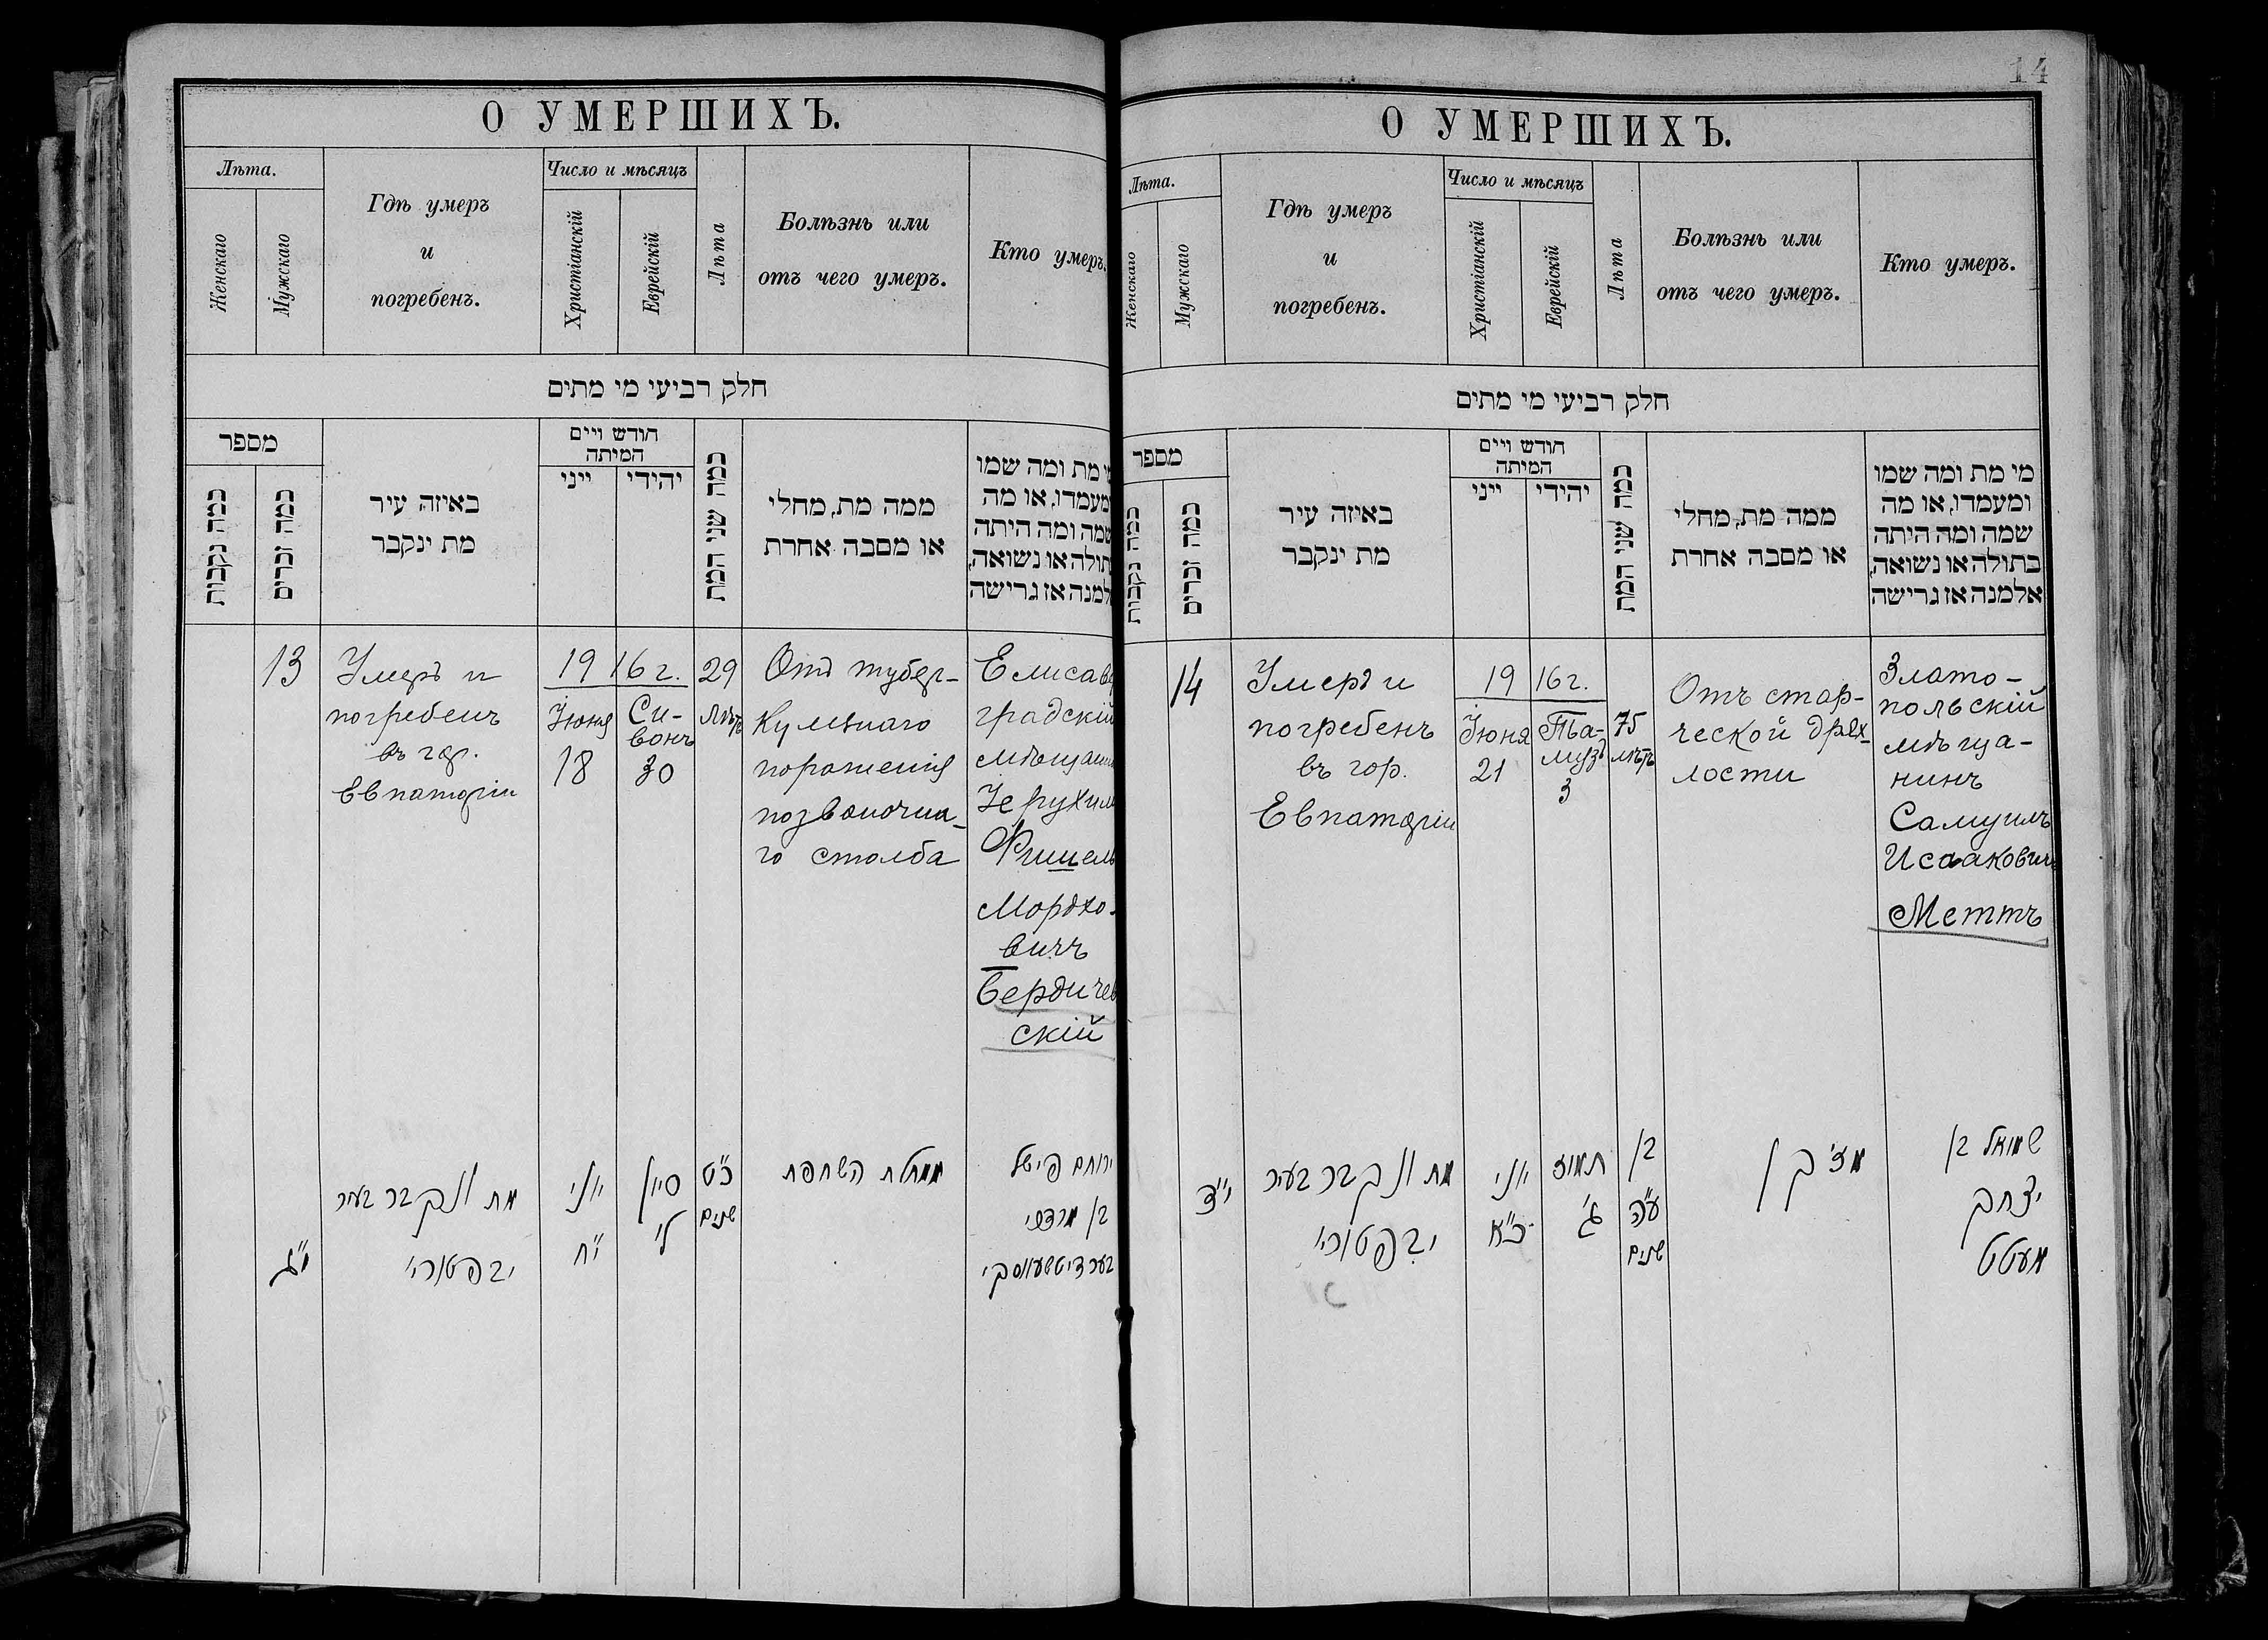 О УМЕРШИХЪ.
Лѣта.
Женскаго
Мужскаго
Гдѣ умеръ
и
погребенъ.
Число и мѣсяцъ
Христіанскій
Еврейскій
Лѣта
Болѣзнь или
отъ чего умеръ.
Кто умеръ.
חלק רביעי מי מתים
מספר
כמה נקבות
כמה זכרים
באיזה עיר
מת ינקבר
חודש ויים
המיתה
ייני
יהודי
כמה שני המת
ממה מת, מחלי
או מסבה אחרת
מי מת ומה שמו
ומעמדו, או מה
שמה ומה היתה
תולה או נשואה,
למנה אז גרישה
13
Умеръ и
погребенъ
въ гор.
Евпаторіи
19 16 г.
Іюня
18
Си-
вонъ
30
29
лѣтъ
Отъ тубер-
кулезнаго
пораженія
позвоночна-
го столба
Елисаве
градскій
мѣщанин
Іерухим
Фишель
Мордко-
вичъ
Бердичев
скій
י"ג
מת ונקבר בעיר
יבפטורי'
יוני
י"ח
סיון
ל'
כ"ט
שנים
ממחלת השחפת
ירוחם פישל
בן מרדכי
בערדיטשעווסקי
14
О УМЕРШИХЪ.
Лѣта.
Женскаго
Мужскаго
Гдѣ умеръ
и
погребенъ.
Число и мѣсяцъ
Христіанскій
Еврейскій
Лѣта
Болѣзнь или
отъ чего умеръ.
Кто умеръ.
חלק רביעי מי מתים
מספר
כמה נקבות
כמה זכרים
באיזה עיר
מת ינקבר
חודש ויים
המיתה
ייני
יהודי
כמה שני המת
ממה מת, מחלי
או מסבה אחרת
מי מת ומה שמו
ומעמדו, או מה
שמה ומה היתה
בתולה או נשואה,
אלמנה אז גרישה
14
Умеръ и
погребенъ
въ гор.
Евпаторіи
19 16 г.
Іюня
21
Та-
музъ
3
75
лѣтъ
Отъ стар-
ческой дрях-
лости
Злато-
польскій
мѣща-
нинъ
Самуилъ
Исааковичъ
Меттъ
י"ד
מת ונקבר בעיר
יבפטורי'
יוני
כ"א
תמוז
ג'
בן
ע"ה
שנים
שמואל בן
יצחק
מעטט